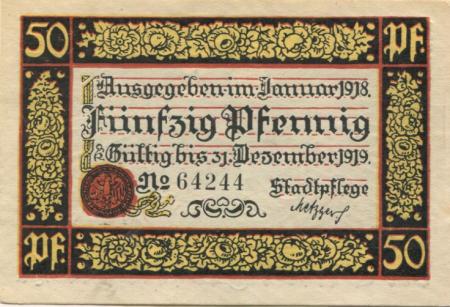 50 Pf.
Ausgegeben im Januar 1918.
Fünfzig Pfennig
Gültig bis 31. Dezember 1919.
No 64244 Stadtpflege
Pf. 50